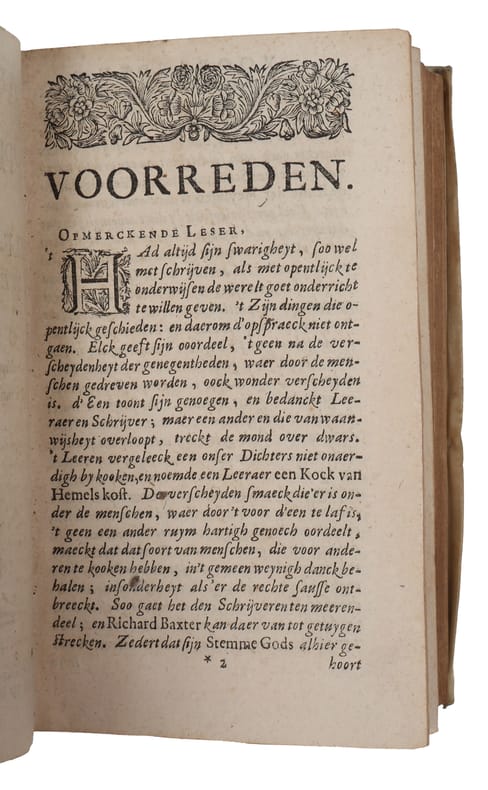 VOORREDEN.
OPMERCKENDE LESER,
't HAd altijd sijn swarigheyt, soo wel
met schrijven, als met opentlijck te
onderwijsen de werelt goet onderricht
te willen geven. 't Zijn dingen die o-
pentlijck geschieden: en daerom d'opspraeck niet ont-
gaen. Elck geeft sijn ooordeel, 't geen na de ver-
scheydenheyt der genegentheden, waer door de men-
schen gedreven worden, oock wonder verscheyden
is. d'Een toont sijn genoegen, en bedanckt Lee-
raer en Schrijver; maer een ander en die van waan-
wijsheyt overloopt, treckt de mond over dwars.
't Leeren vergeleeck een onser Dichters niet onaer-
digh by kooken, en noemde een Leeraer een Kock van
Hemels kost. De verscheyden smaeck die'er is on-
der de menschen, waer door't voor d'een te laf is,
't geen een ander ruym hartigh genoech oordeelt,
maeckt dat dat soort van menschen, die voor ande-
ren te kooken hebben, in't gemeen weynigh danck be-
halen; insonderheyt als'er de rechte sausse ont-
breeckt. Soo gaet het den Schrijveren ten meeren-
deel; en Richard Baxter kan daer van tot getuygen
strecken. Zedert dat sijn Stemme Gods alhier ge-
* 2 hoort